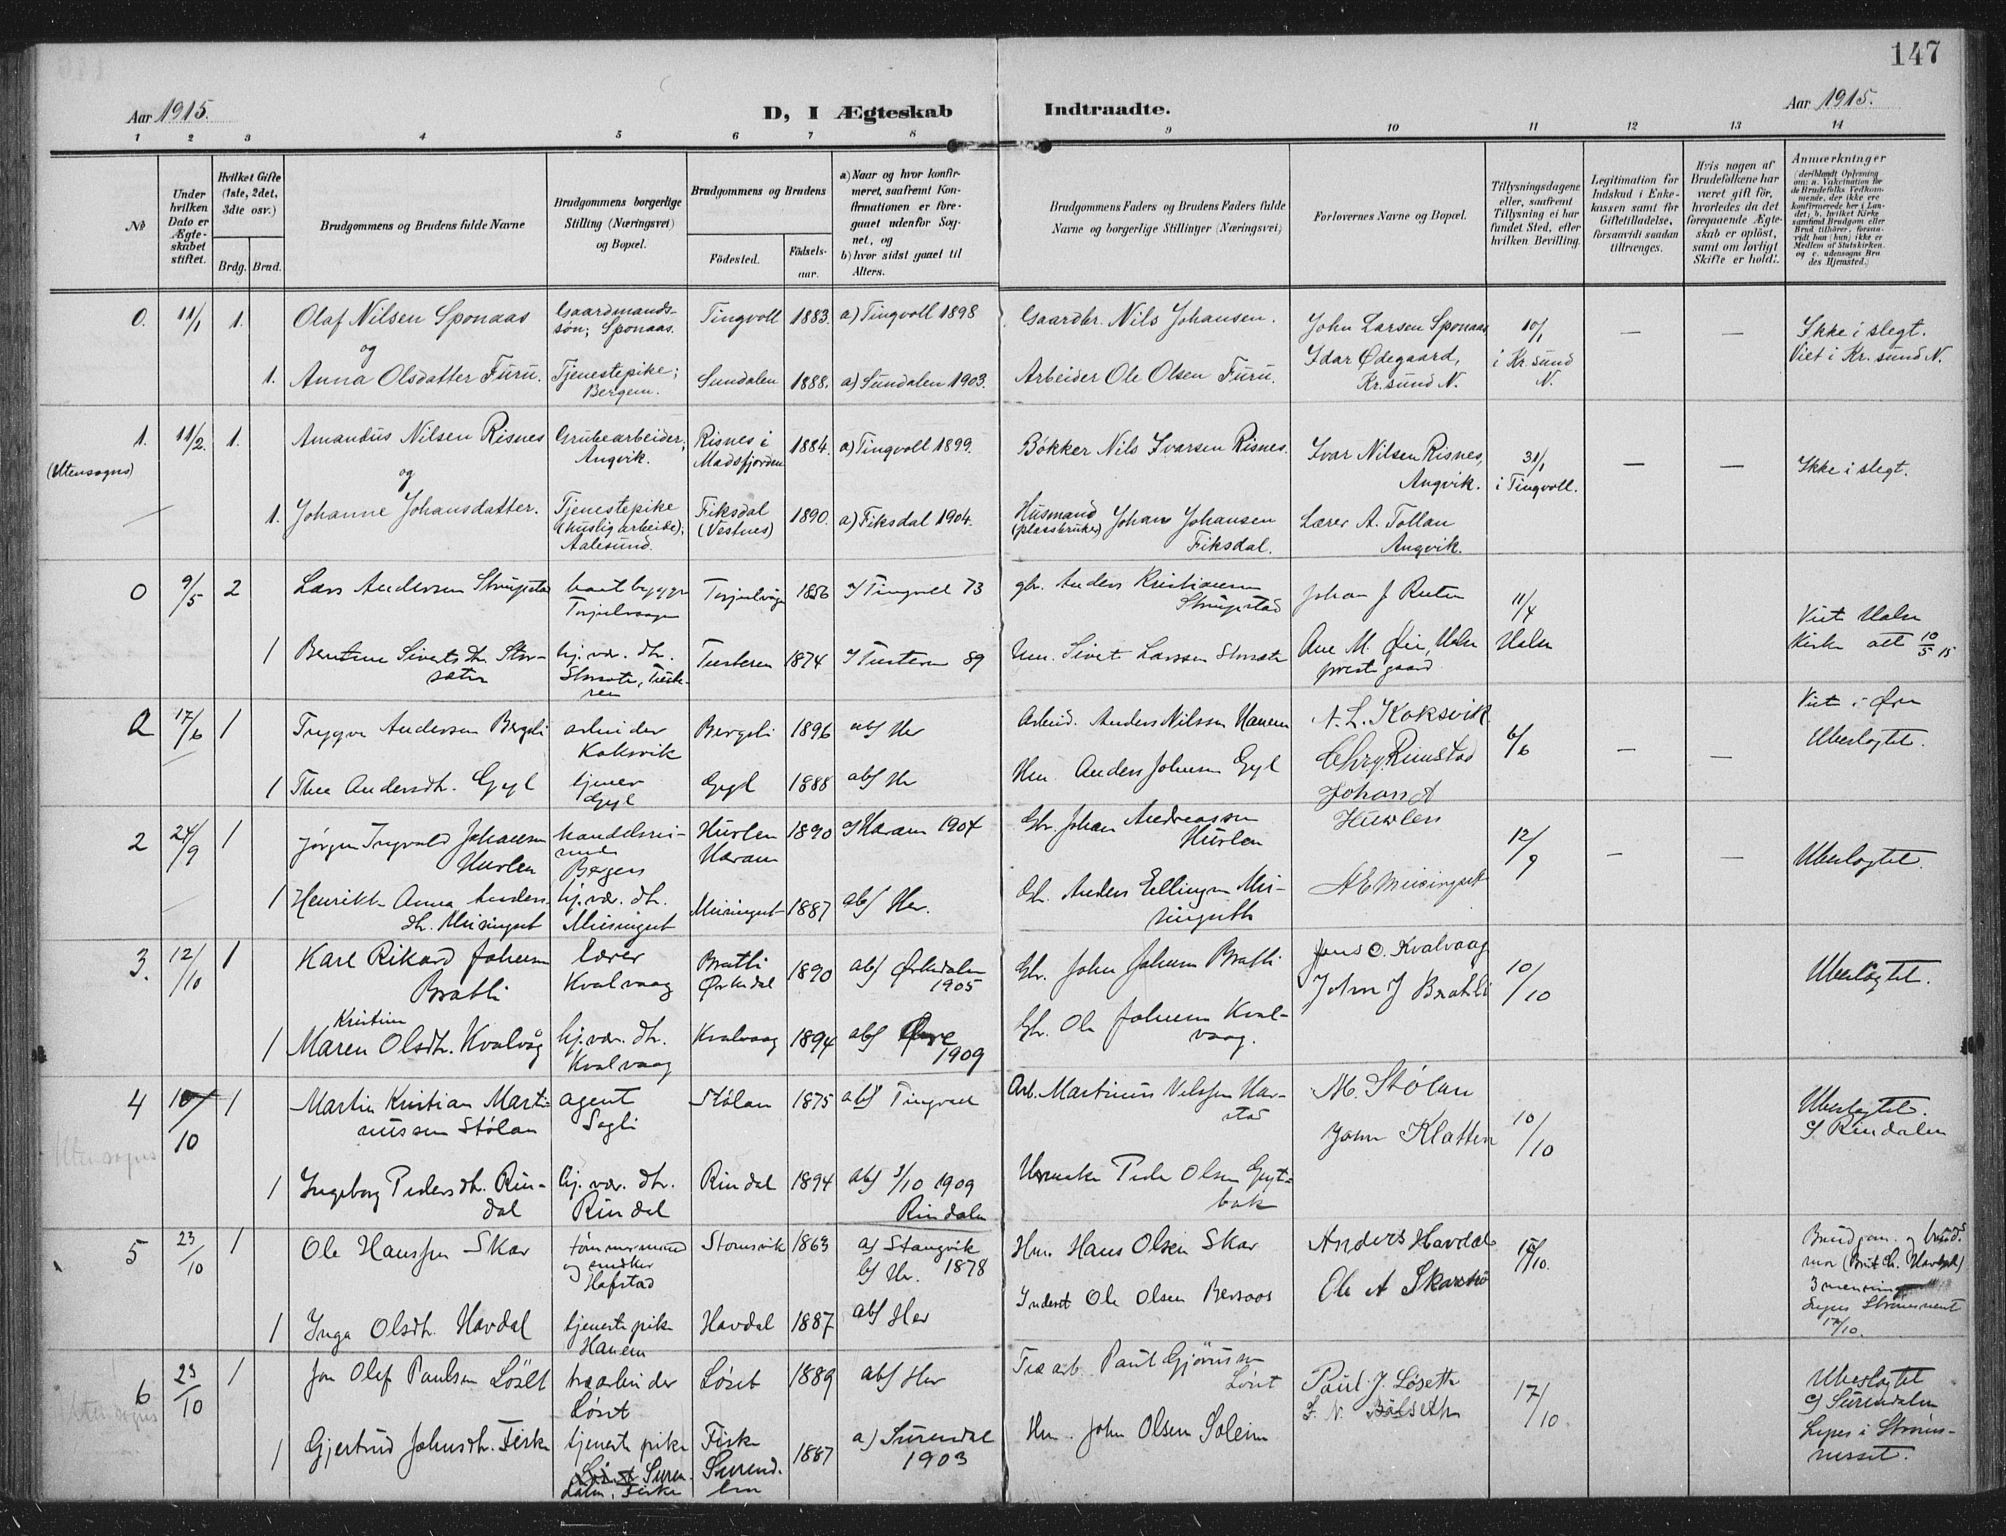 147
Aar 1915.
D, I Ægteskab Indtraadte.
Aar 1915.
1 2 3 4 5 6 7 8 9 10 11 12 13 14
No
Under hvilken Dato er Ægteskabet stiftet.
Hvilket Gifte (1ste, 2det, 3die osv.)
Brdg. Brud.
Brudgommens og Brudens fulde Navne
Brudgommens borgerlige Stilling (Næringsvei) og Bopæl.
Brudgommens og Brudens
Fødested.
Fødselsaar.
a) Naar og hvor konfirmeret, saafremt Konfirmationen er foregaaet udenfor Sognet, og
b) hvor sidst gaaet til Alters.
Brudgommens Faders og Brudens Faders fulde Navne og borgerlige Stillinger (Næringsvei)
Forlovernes Navne og Bopæl.
Tillysningsdagene eller, saafremt Tillysning ei har fundet Sted, efter hvilken Bevilling.
Legitimation for Indskud i Enkekassen samt for Giftetilladelse, forsaavidt saadan tiltrænges.
Hvis nogen af Brudefolkene har været gift før, hvorledes da det foregaaende Ægteskab er opløst, samt om lovligt Skifte er holdt.
Anmærkninger
(deriblandt Oplysning om: a. Vakcination for de Brudefolks Vedkommende, der ikke ere konfirmerede her i Landet; b. hvilket Kirkesamfund Brudgom eller Brud tilhører, forsaavidt han (hun) ikke er Medlem af Statskirken. og c. udensogns Brudes Hjemsted.)
0. 11/1 1. Olaf Nilsen Sponaas Gaardmandssøn; Sponaas. Tingvoll 1883. a) Tingvoll 1898 Gaardbr. Nils Johansen. John Larsen Sponaas 10/1 i Kr.sund N. — — Ikke i slegt. Viet i Kr.sund N.
og
1. Anna Olsdatter Furu. Tjenestepike; Bergem. Sundalen 1888. a) Sundalen 1903. Arbeider Ole Olsen Furu. Idar Ødegaard, Kr.sund N.
1. (Utensogns) 11/2. 1. Amandus Nilsen Risnes Grubearbeider, Angvik. Risnes i Madsfjorden 1884. a) Tingvoll 1899. Bøkker Nils Ivarsen Risnes. Ivar Nilsen Risnes, Angvik. 31/1 i Tingvoll. — — Ikke i slegt.
og
1. Johanne Johansdatter. Tjenestepike (huslig arbeide); Aalesund. Fiksdal (Vestnes) 1890. a) Fiksdal 1904. Husmand (plassbruker) Johan Johansen Fiksdal. Lærer A. Tollan Angvik.
0 9/5 2 Lars Andersen Torjulvaagen 1856 Tingvoll 73 gbr. Anders Kristiansen Johan J 11/4 Halsa Viet Halsa Kirke att 10/5 15
1 Sivertsdtr. Storsæter hj. vær. dtr. Tusteren 1874 Tusteren 89 Sivert Larssen Ane M. Øie, Halsa prestgaard
2 17/6 1 Trygve Andersen Bergsli arbeider Koksvik Bergsli 1896 abf Her Arbeid. Anders Nilssen Hanem A. L. Koksvik 6/6 — — Viet i Øre Ubeslægtet.
1 Thea Andersdtr. Gyl tjener Gyl Gyl 1888 abf Her Hm. Anders Johnsen Gyl Chr. Rimstad
2 24/9 1 Jørgen Ingvald Johansen Hurlen Bergen Hurlen Haram 1890 Haram 1904 Gbr. Johan Andreassen Hurlen Johan A Hurlen 12/9 — — Ubeslægtet.
1 Henrikke Anna Andersdtr. Meisingset hj. vær. dtr. Meisingset Meisingset 1887 abf Her. Gbr. Anders Ellingsen Meisingseth A E Meisingset
3. 12/10 1 Karl Rikard Johnsen Bratli lærer Kvalvaag Bratli Ørkedal 1890 abf Ørkedalen 1905 Gbr. John Johnsen Bratli Jens O. Kvalvaag 10/10 Ubeslægtet.
1 Maren Kristine Olsdtr. Kvalvåg hj. vær. dtr. Kvalvaag Kvalvaag 1894 abf Øre 1909 Gbr. Ole Johnsen Kvalvaag. John J Bratli
4 Utensogns 10/10 1 Martin Kristian Martinussen Stølan agent Sagli Stølan 1875 abf Tingvoll Arb. Martinus Nilssen Harstad M. Stølan 10/10 Ubeslægtet. c/ Rindalen
1 Ingeborg Pedersdtr. Rindal hj. vær. dtr. Rindal Rindal 1894 abf 3/10 1909 Rindalen Peder Olsen John Klatten
5 23/10 1 Ole Hanssen Skar tømmermand og snedker Hafstad Stangvik 1863 a) Stangvik b) Her. 1878 Hm. Hans Olsen Skar Anders Havdal /10. Brudgom. og brudsmor
1 Inga Olsdtr. Havdal tjenestepike Hanem Havdal 1887 abf Her Inderst Ole Olsen Bersaas Ole A Skarsbø 3 menning Lyses Strømsneset 17/10.
6 Utensogns 23/10 1 Jon Olef Paulsen Löset træarbeider Løset Løset 1889 abf Her Træarb. Paul Gjørussen Løset Paul J. Løseth 17/10. Ubeslægtet c/ Surendalen Lyses i Strømsnesset.
1 Gjertrud Johnsdtr. Fiske tjenestepike Surendalen, Fiske Fiske Surendalen 1887 a) Surendal 1903 Hm. John Olsen Soleim I. N. Bölseth